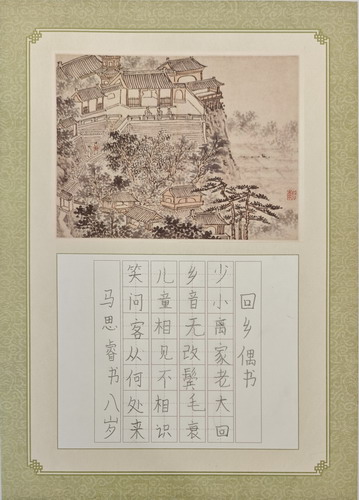 回乡偶书
少小离家老大回
乡音无改鬓毛衰
儿童相见不相识
笑问客从何处来
马思睿书八岁